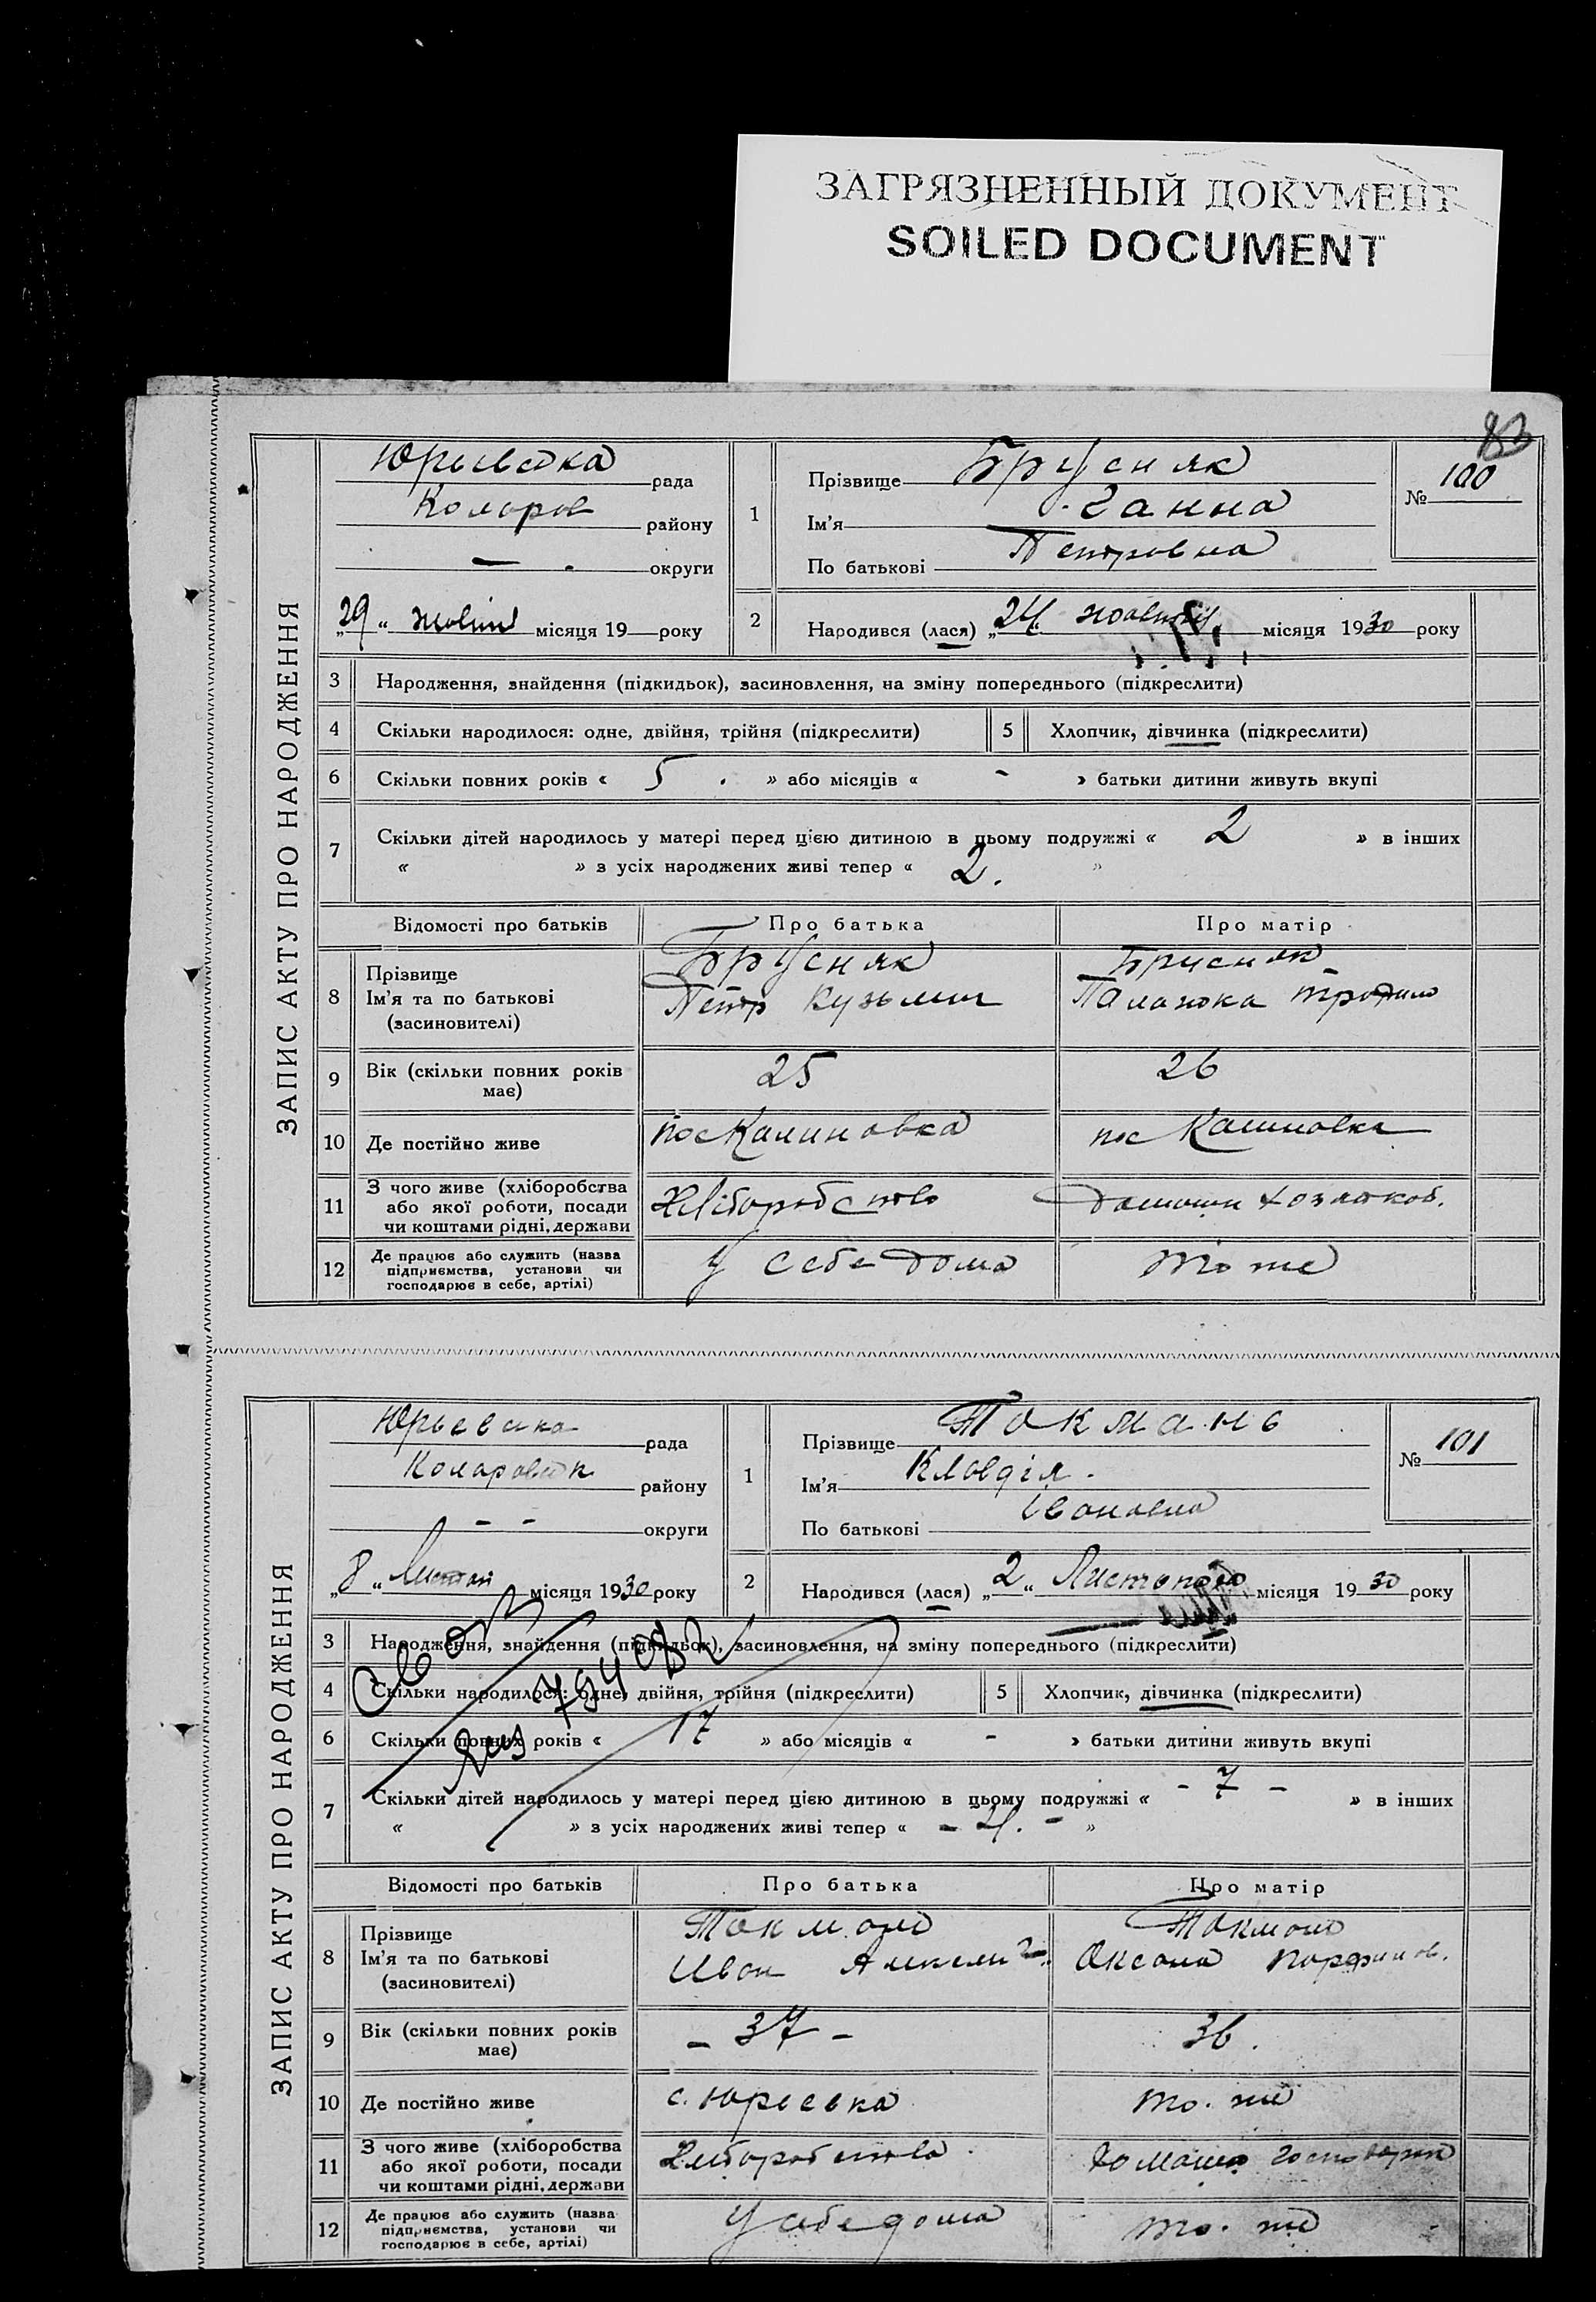 ЗАГРЯЗНЕННЫЙ ДОКУМЕНТ
SOILED DOCUMENT
83
ЗАПИС АКТУ ПРО НАРОДЖЕННЯ
Юрьевска рада
Коларов району
— округи
„29“ жовтня місяця 19 року
1
Прізвище Брусняк
Ім'я Ганна
По батькові Петровна
№ 100
2
Народився (лася) „24“ жовтня місяця 1930 року
3 Народження, знайдення (підкидьок), засиновлення, на зміну попереднього (підкреслити)
4 Скільки народилося: одне, двійня, трійня (підкреслити)
5 Хлопчик, дівчинка (підкреслити)
6 Скільки повних років « 5 » або місяців « - » батьки дитини живуть вкупі
7 Скільки дітей народилось у матері перед цією дитиною в цьому подружжі « 2 » в інших
« » з усіх народжених живі тепер « 2. »
Відомості про батьків Про батька Про матір
8 Прізвище
Ім'я та по батькові
(засиновителі)
Брусняк
Петр Кузьмич
Брусняк
9 Вік (скільки повних років має) 25 26
10 Де постійно живе пос Калиновка пос Калиновка
11 З чого живе (хліборобства
або якої роботи, посади
чи коштами рідні, держави
Хліборобство
12 Де працює або служить (назва
підприємства, установи чи
господарює в себе, артілі)
у себе дома
то же
ЗАПИС АКТУ ПРО НАРОДЖЕННЯ
Юрьевска рада
Коларовск району
- - округи
„8“ Листоп місяця 1930 року
1
Прізвище Токмань
Ім'я Клавдія.
По батькові Івановна
№ 101
2
Народився (лася) „2“ Листопада місяця 1930 року
3 Народження, знайдення (підкидьок), засиновлення, на зміну попереднього (підкреслити)
4 Скільки народилося: одне, двійня, трійня (підкреслити)
5 Хлопчик, дівчинка (підкреслити)
6 Скільки повних років « 17 » або місяців « - » батьки дитини живуть вкупі
7 Скільки дітей народилось у матері перед цією дитиною в цьому подружжі « - 7 - » в інших
« » з усіх народжених живі тепер « - 4. - »
Відомості про батьків Про батька Про матір
8 Прізвище
Ім'я та по батькові
(засиновителі)
Токмань
Иван
Токмань
Оксана
9 Вік (скільки повних років має) - 37 - 36.
10 Де постійно живе с. Юрьевка то. же
11 З чого живе (хліборобства
або якої роботи, посади
чи коштами рідні, держави
Хліборобство.
12 Де працює або служить (назва
підприємства, установи чи
господарює в себе, артілі)
У себе дома
то. же